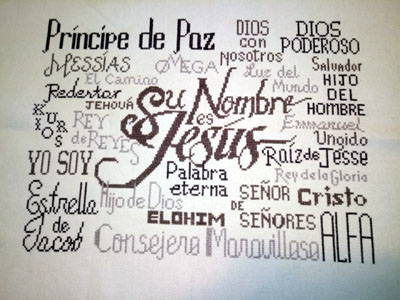 Príncipe de Paz
DIOS
con
nosotros
DIOS
PODEROSO
MESSÍAS
OMEGA
Salvador
El Camino
Luz del
Mundo
HIJO
DEL
HOMBRE
Redentor
JEHOVÁ
Su Nombre
es
Jesús
KURIOS
REY
de REYES
Emmanuel
Ungido
YO SOY
Raíz de Jesse
Palabra
eterna
Rey de la Gloria
Estrella
de
Jacob
Hijo de Dios
SEÑOR
DE
SEÑORES
Cristo
ELOHIM
Consejero Maravilloso
ALFA